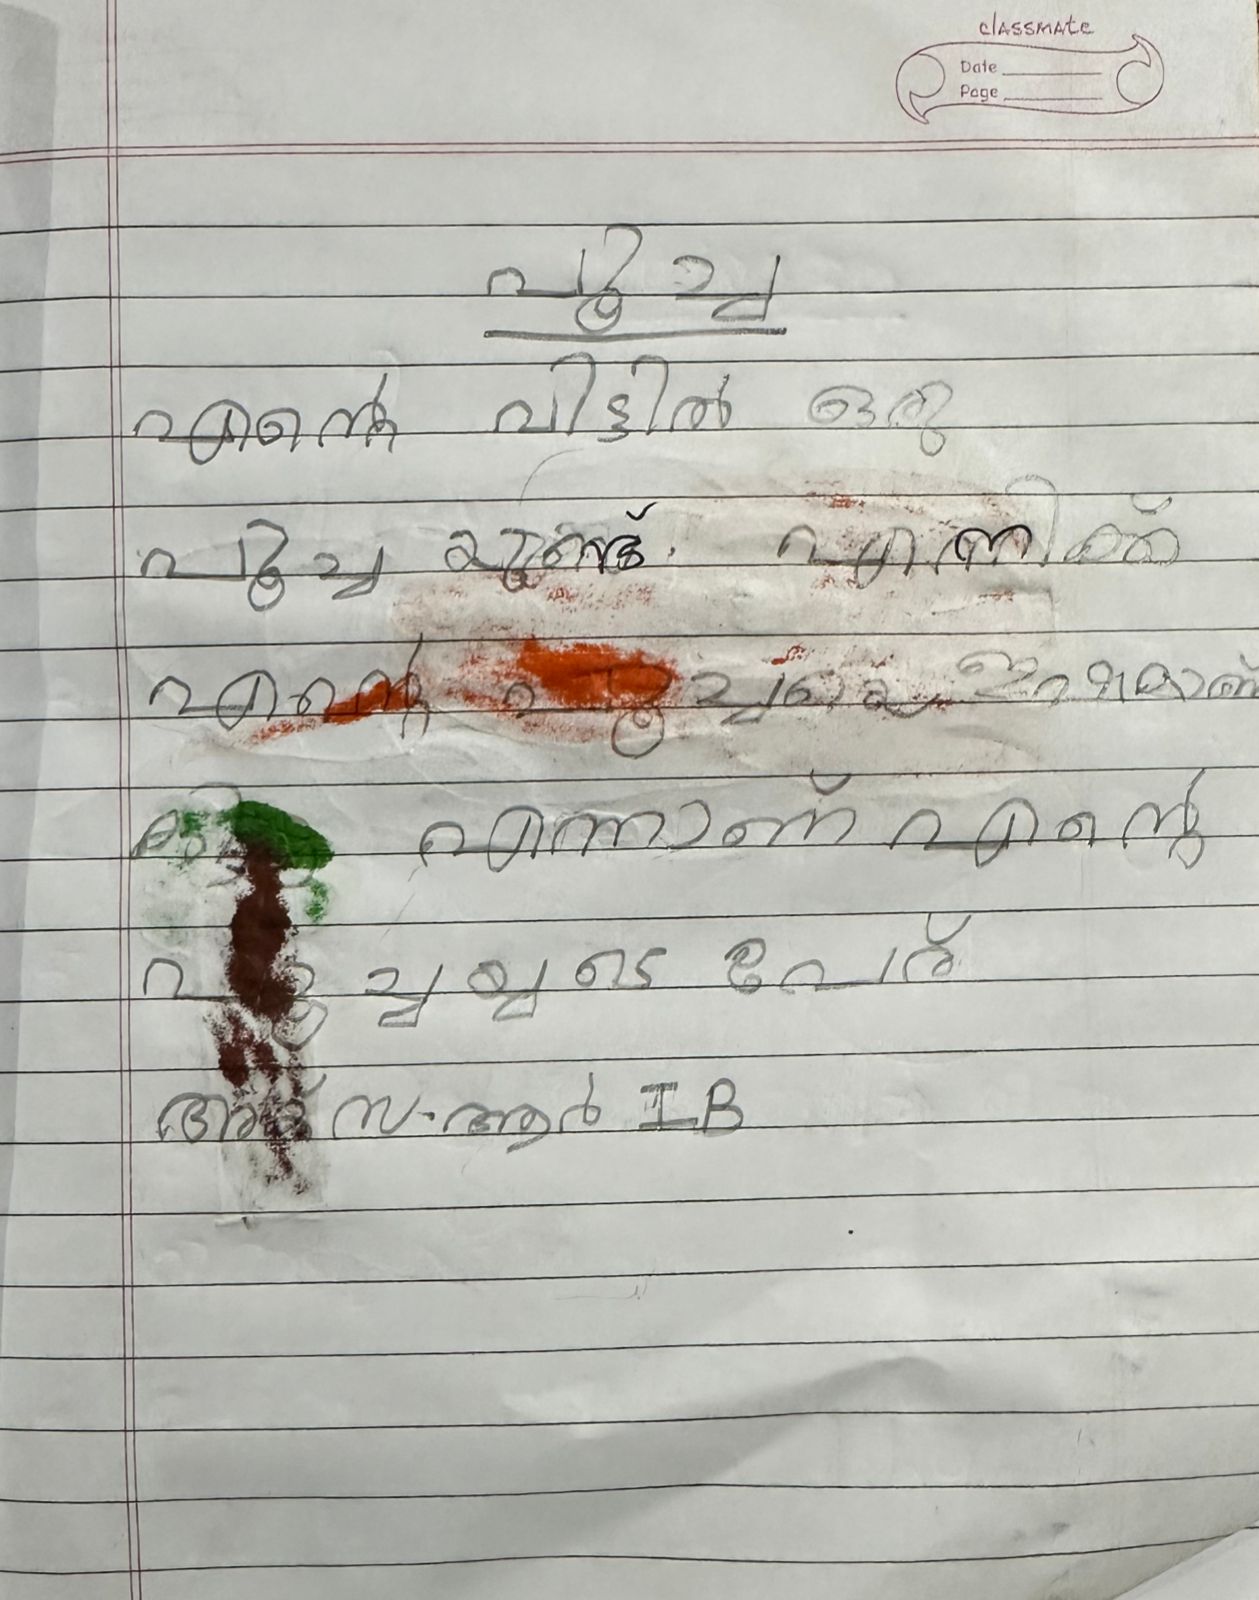 classmate
Date
Page
പൂച്ച
എന്റെ വീട്ടിൽ ഒരു
പൂച്ച യുണ്ട്. എനിക്ക്
എന്റെ പൂച്ചയെ
എന്നാണ് എന്റെ
പൂച്ചയുടെ പേര്
IB